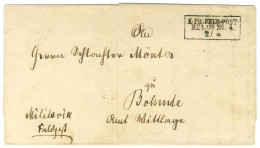 K. PR. FELD-POST
RELAIS Nr. 4.
2/9
An
Herrn Schlachter Mönter
zu
Bohmte
Amt Wittlage
Militaria
Feldpost